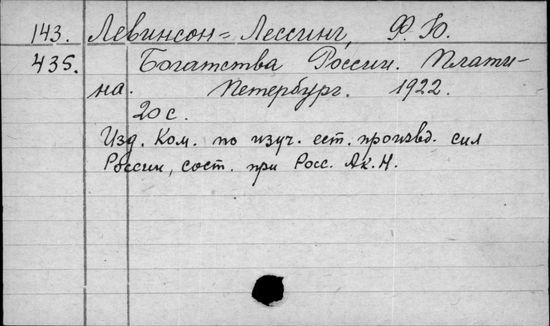 143. Левинсон-Лессинг, Ф. Ю.
435. Богатства России. Плати-
на. Петербург. 1922.
20 с.
Изд. Ком. по изуч. ест. произвд. сил
России, сост. при Росс. Ак. Н.